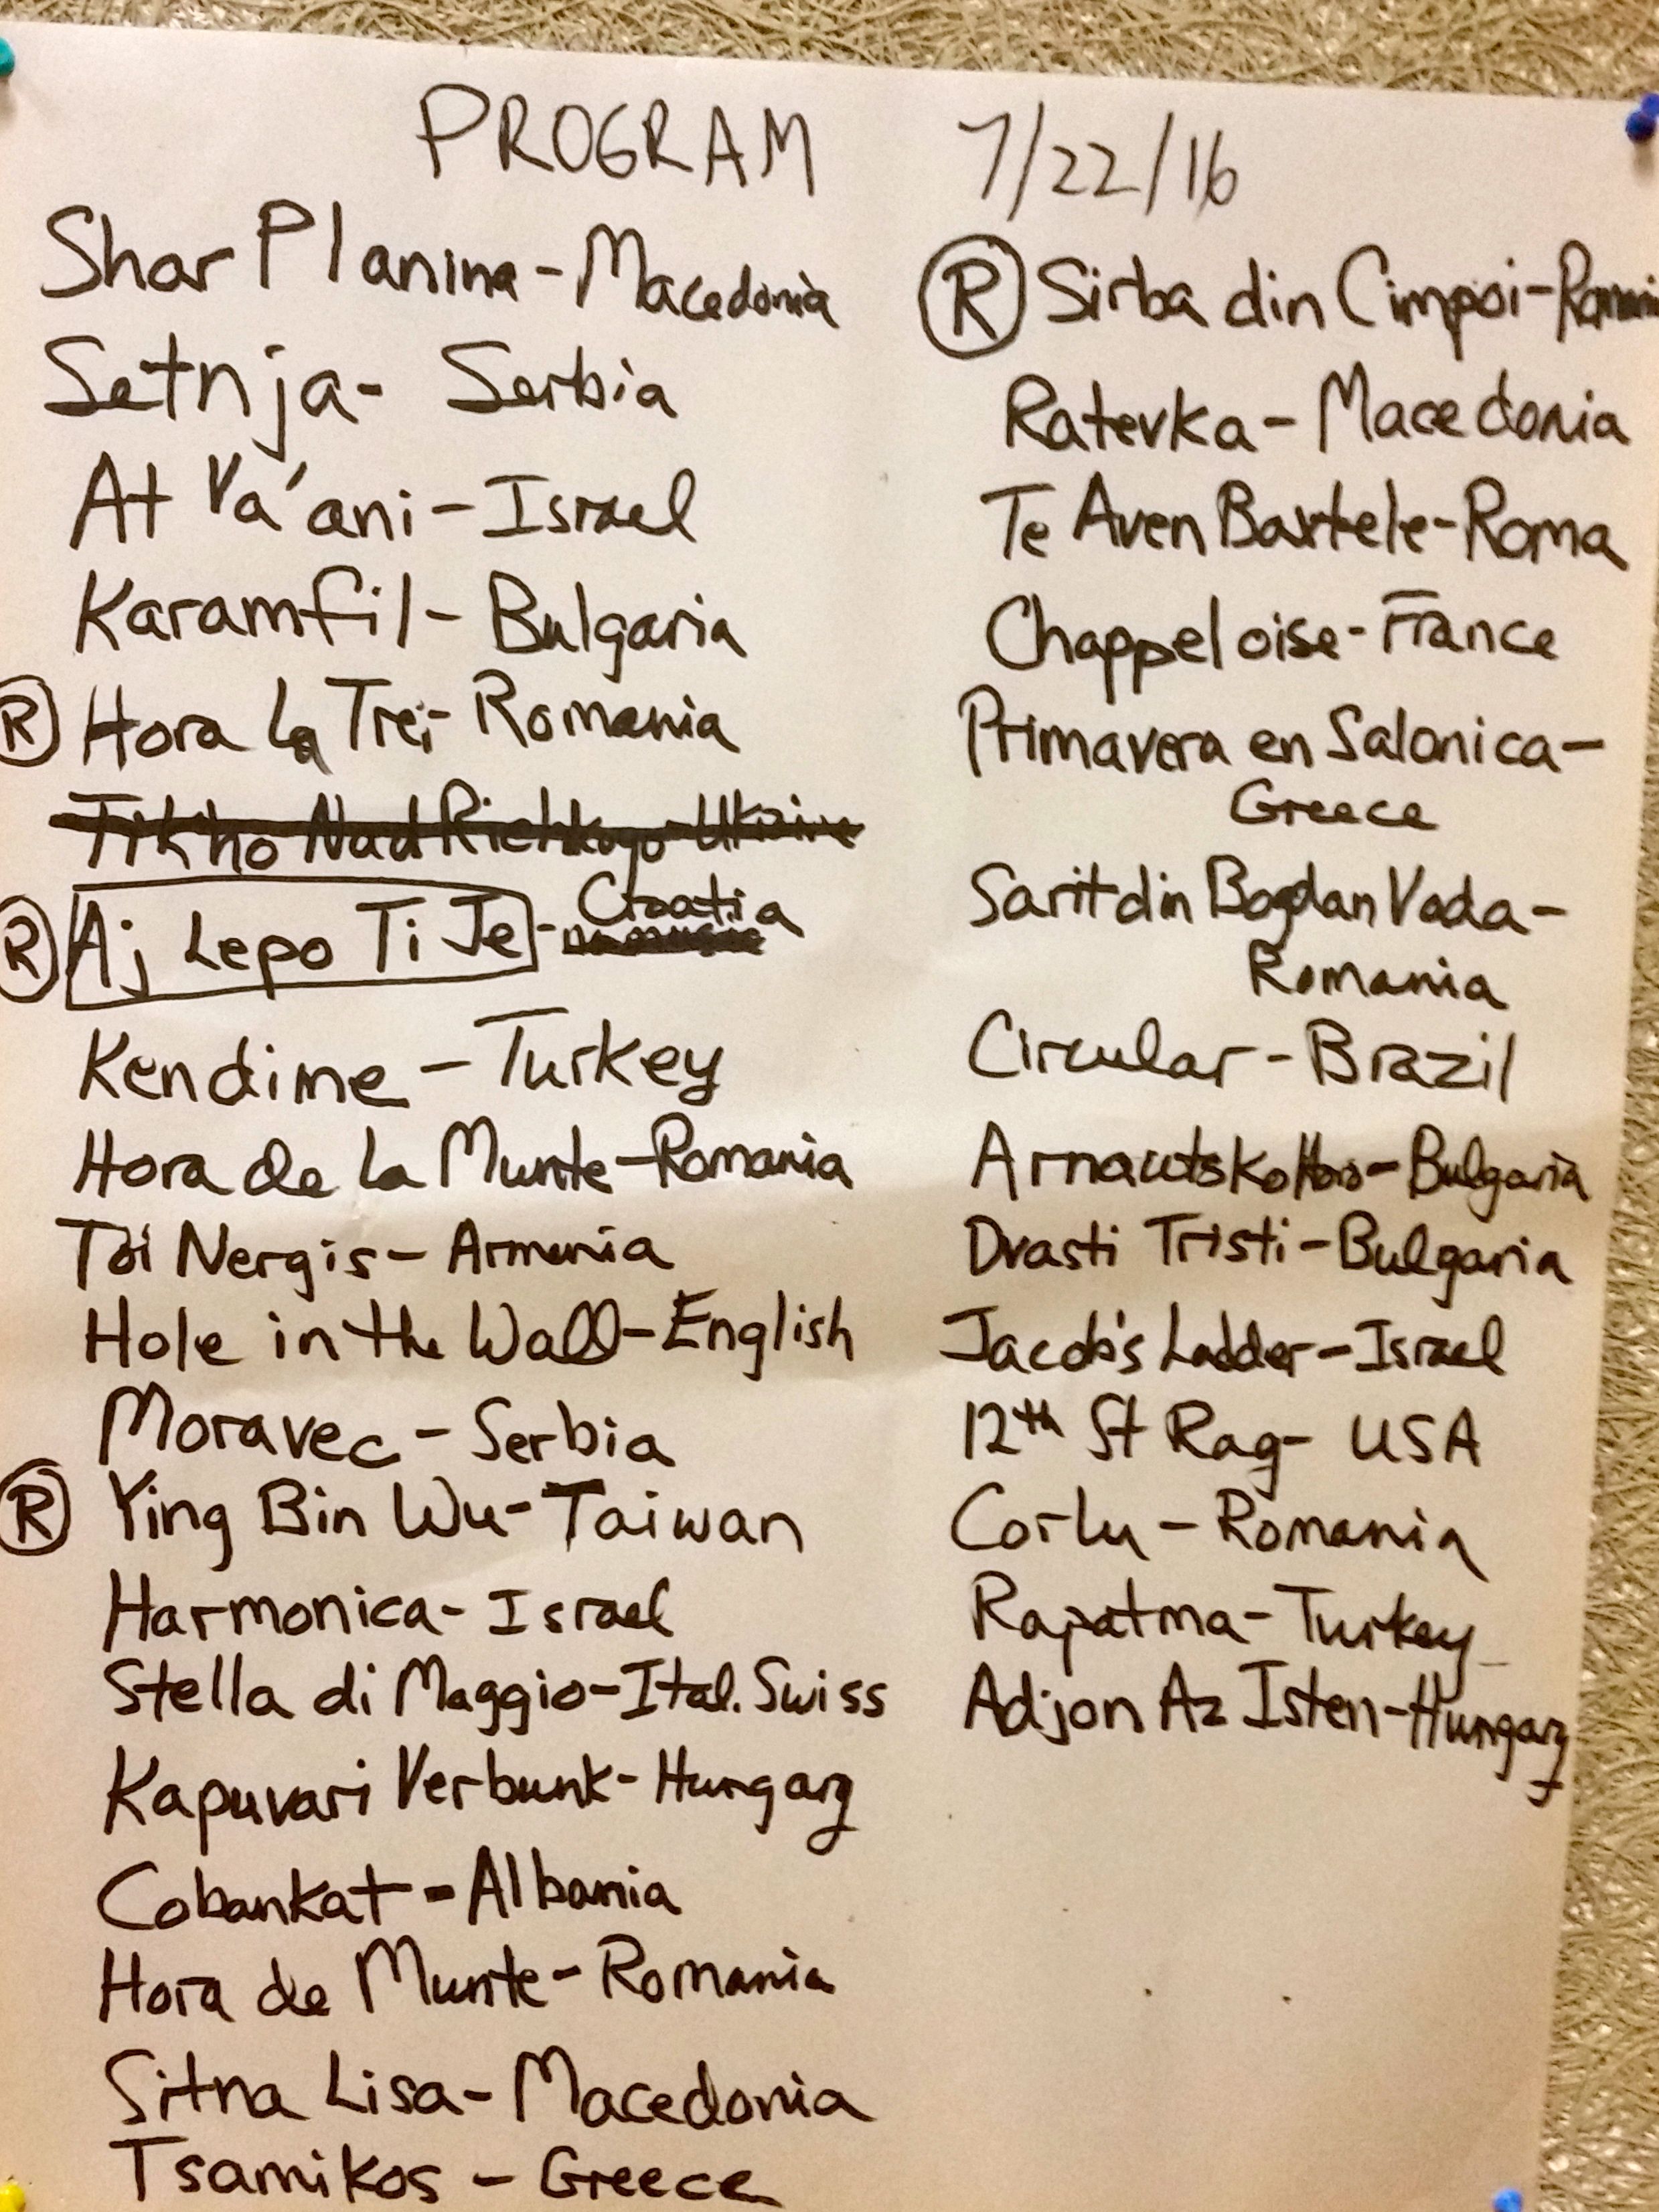 PROGRAM 7/22/16
Shar Planina - Macedonia
Setnja - Serbia
At Va'ani - Israel
Karamfil - Bulgaria
Ⓡ Hora La Trei - Romania
Tikho Nad Richkoyo - Ukraine
Ⓡ Aj Lepo Ti Je - Croatia
Kendime - Turkey
Hora de La Munte - Romania
Toi Nergis - Armenia
Hole in the Wall - English
Moravec - Serbia
Ⓡ Ying Bin Wu - Taiwan
Harmonica - Israel
Stella di Maggio - Ital. Swiss
Kapuvari Verbunk - Hungary
Cobankat - Albania
Hora de Munte - Romania
Sitna Lisa - Macedonia
Tsamikos - Greece
Ⓡ Sirba din Cimpoi - Romani
Ratevka - Macedonia
Te Aven Baxtele - Roma
Chappeloise - France
Primavera en Salonica -
Greece
Sarit din Bogdan Voda -
Romania
Circular - Brazil
Arnautsko Horo - Bulgaria
Drasti Tristi - Bulgaria
Jacob's Ladder - Israel
12th St Rag - USA
Corlu - Romania
Rapatma - Turkey
Adjon Az Isten - Hungary